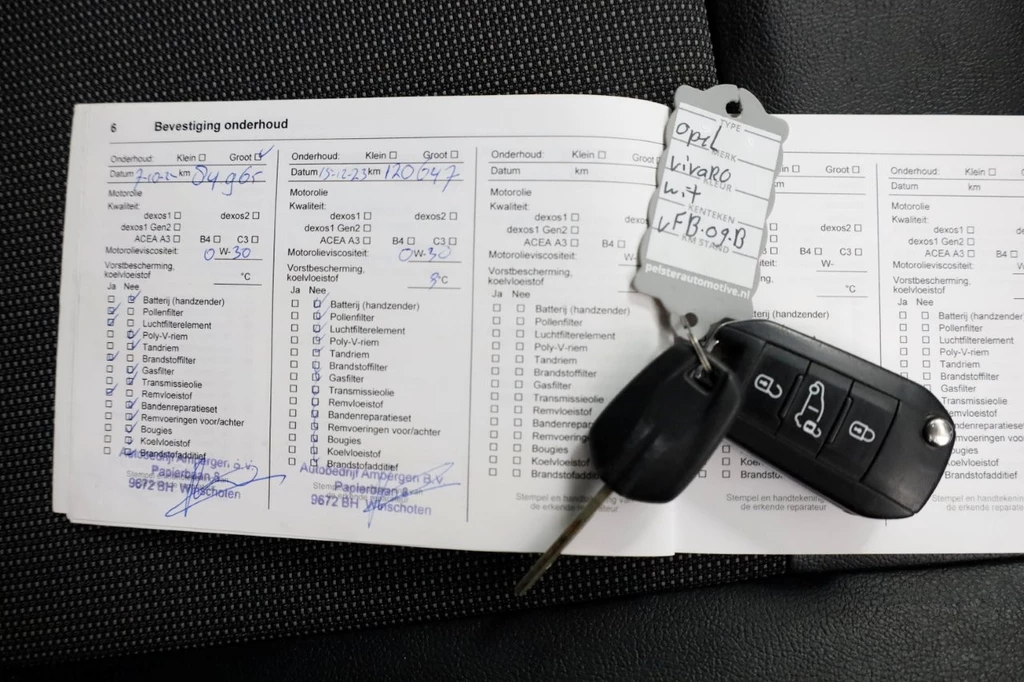 6 Bevestiging onderhoud
Onderhoud: Klein ☐ Groot ☐
Datum km
Motorolie
Kwaliteit:
dexos1 ☐ dexos2 ☐
dexos1 Gen2 ☐
ACEA A3 ☐ B4 ☐ C3 ☐
Motorolieviscositeit: 0 W-30
Vorstbescherming,
koelvloeistof °C
Ja Nee
☐ ☐ Batterij (handzender)
☐ ☐ Pollenfilter
☐ ☐ Luchtfilterelement
☐ ☐ Poly-V-riem
☐ ☐ Tandriem
☐ ☐ Brandstoffilter
☐ ☐ Gasfilter
☐ ☐ Transmissieolie
☐ ☐ Remvloeistof
☐ ☐ Bandenreparatieset
☐ ☐ Remvoeringen voor/achter
☐ ☐ Bougies
☐ ☐ Koelvloeistof
☐ ☐ Brandstofadditief
Autobedrijf Ampergen B.V.
Papierbaan 8
9672 BH Winschoten
Onderhoud: Klein ☐ Groot ☐
Datum 15-12-23 km 120647
Motorolie
Kwaliteit:
dexos1 ☐ dexos2 ☐
dexos1 Gen2 ☐
ACEA A3 ☐ B4 ☐ C3 ☐
Motorolieviscositeit: 0 W-30
Vorstbescherming,
koelvloeistof °C
Ja Nee
☐ ☐ Batterij (handzender)
☐ ☐ Pollenfilter
☐ ☐ Luchtfilterelement
☐ ☐ Poly-V-riem
☐ ☐ Tandriem
☐ ☐ Brandstoffilter
☐ ☐ Gasfilter
☐ ☐ Transmissieolie
☐ ☐ Remvloeistof
☐ ☐ Bandenreparatieset
☐ ☐ Remvoeringen voor/achter
☐ ☐ Bougies
☐ ☐ Koelvloeistof
☐ ☐ Brandstofadditief
Autobedrijf Ampergen B.V.
Papierbaan 8
9672 BH Winschoten
Onderhoud: Klein ☐ Groot ☐
Datum km
Motorolie
Kwaliteit:
dexos1 ☐
dexos1 Gen2 ☐
ACEA A3 ☐ B4 ☐
Motorolieviscositeit: W-
Vorstbescherming,
koelvloeistof
Ja Nee
☐ ☐ Batterij (handzender)
☐ ☐ Pollenfilter
☐ ☐ Luchtfilterelement
☐ ☐ Poly-V-riem
☐ ☐ Tandriem
☐ ☐ Brandstoffilter
☐ ☐ Gasfilter
☐ ☐ Transmissieolie
☐ ☐ Remvloeistof
☐ ☐ Bandenreparatieset
☐ ☐ Remvoeringen
☐ ☐ Bougies
☐ ☐ Koelvloeistof
☐ ☐ Brandstofadditief
Stempel en handtekening
de erkende reparateur
TYPE
Opel
MERK
vivaRO
KLEUR
wit
KENTEKEN
VFB.09.B
KM STAND
pelsterautomotive.nl
Groot ☐
km
dexos2 ☐
B4 ☐ C3 ☐
W-
°C
Stempel en handtekening
de erkende reparateur
Onderhoud: Klein ☐
Datum km
Motorolie
Kwaliteit:
dexos1 ☐
dexos1 Gen2 ☐
ACEA A3 ☐ B4 ☐
Motorolieviscositeit:
Vorstbescherming,
koelvloeistof
Ja Nee
☐ ☐ Batterij
☐ ☐ Pollenfilter
☐ ☐ Luchtfilterelement
☐ ☐ Poly-V-riem
☐ ☐ Tandriem
☐ ☐ Brandstoffilter
☐ ☐ Gasfilter
☐ ☐ Transmissieolie
Remvloeistof
Remvoeringen
Bougies
Koelvloeistof